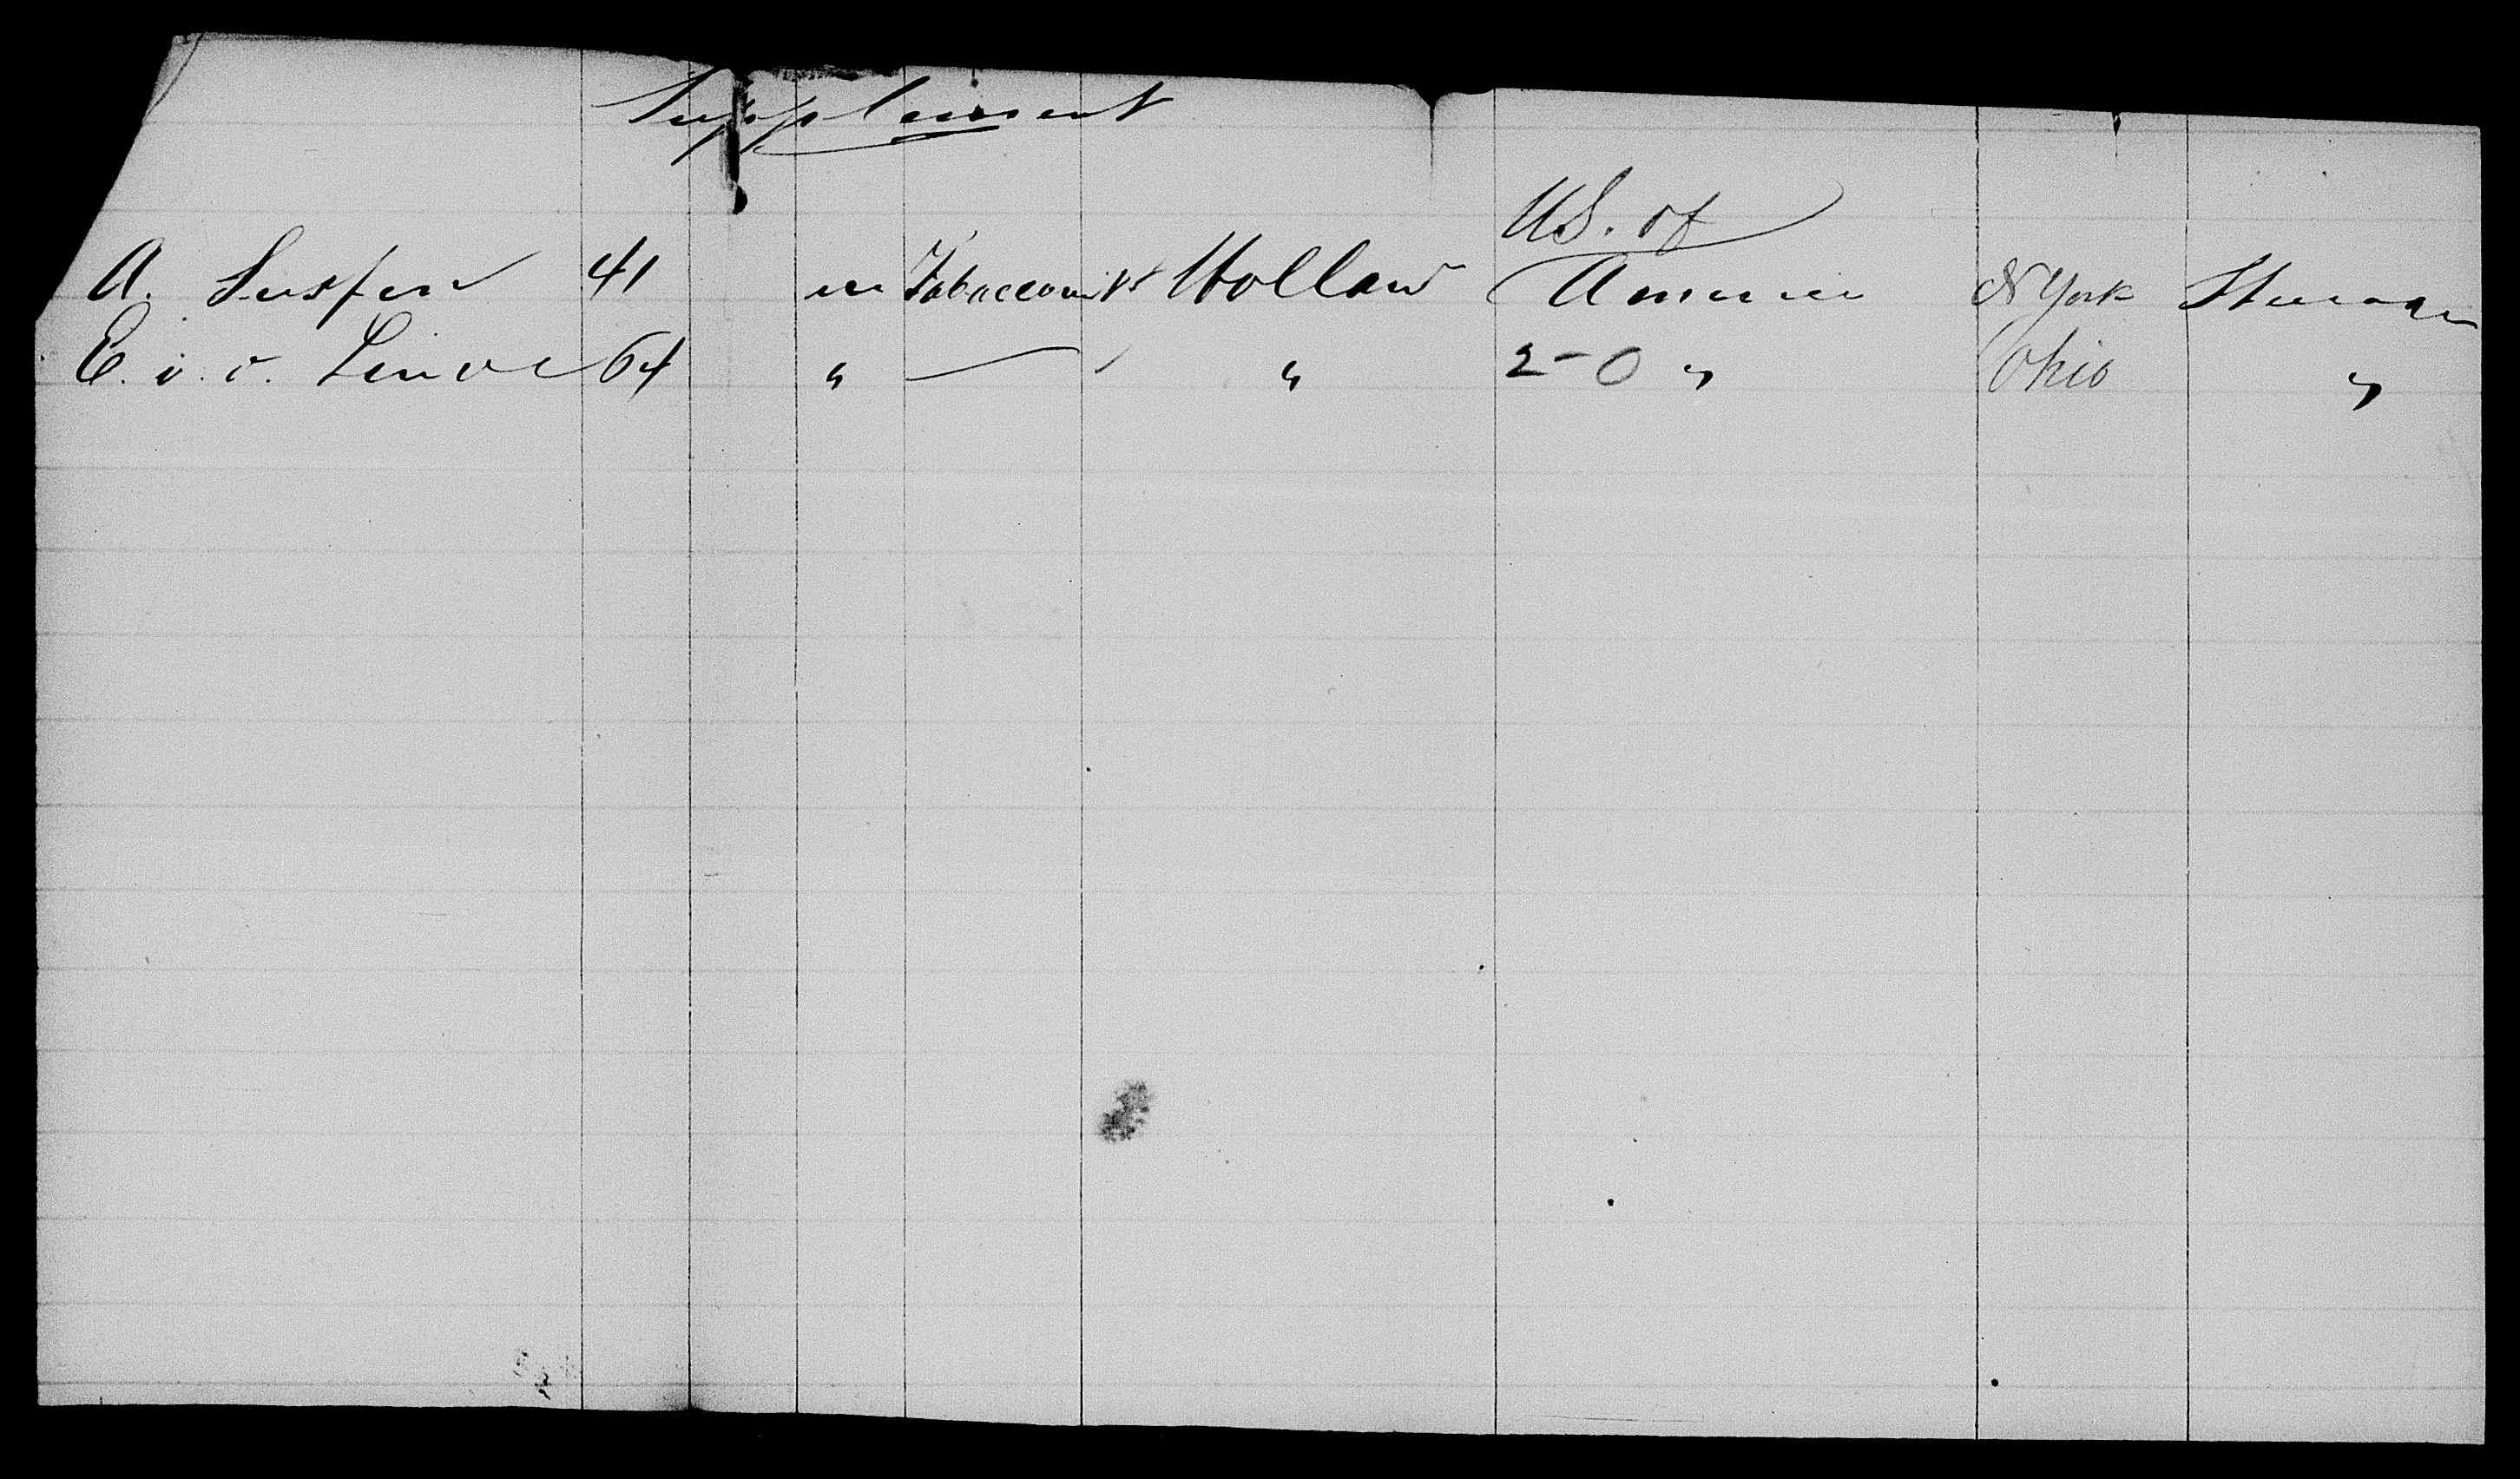 Supplement
US. of
A. 41 m Tobacconist Holland America N York
E. v. d. Linde 64 " — " 2-0 " Ohio "